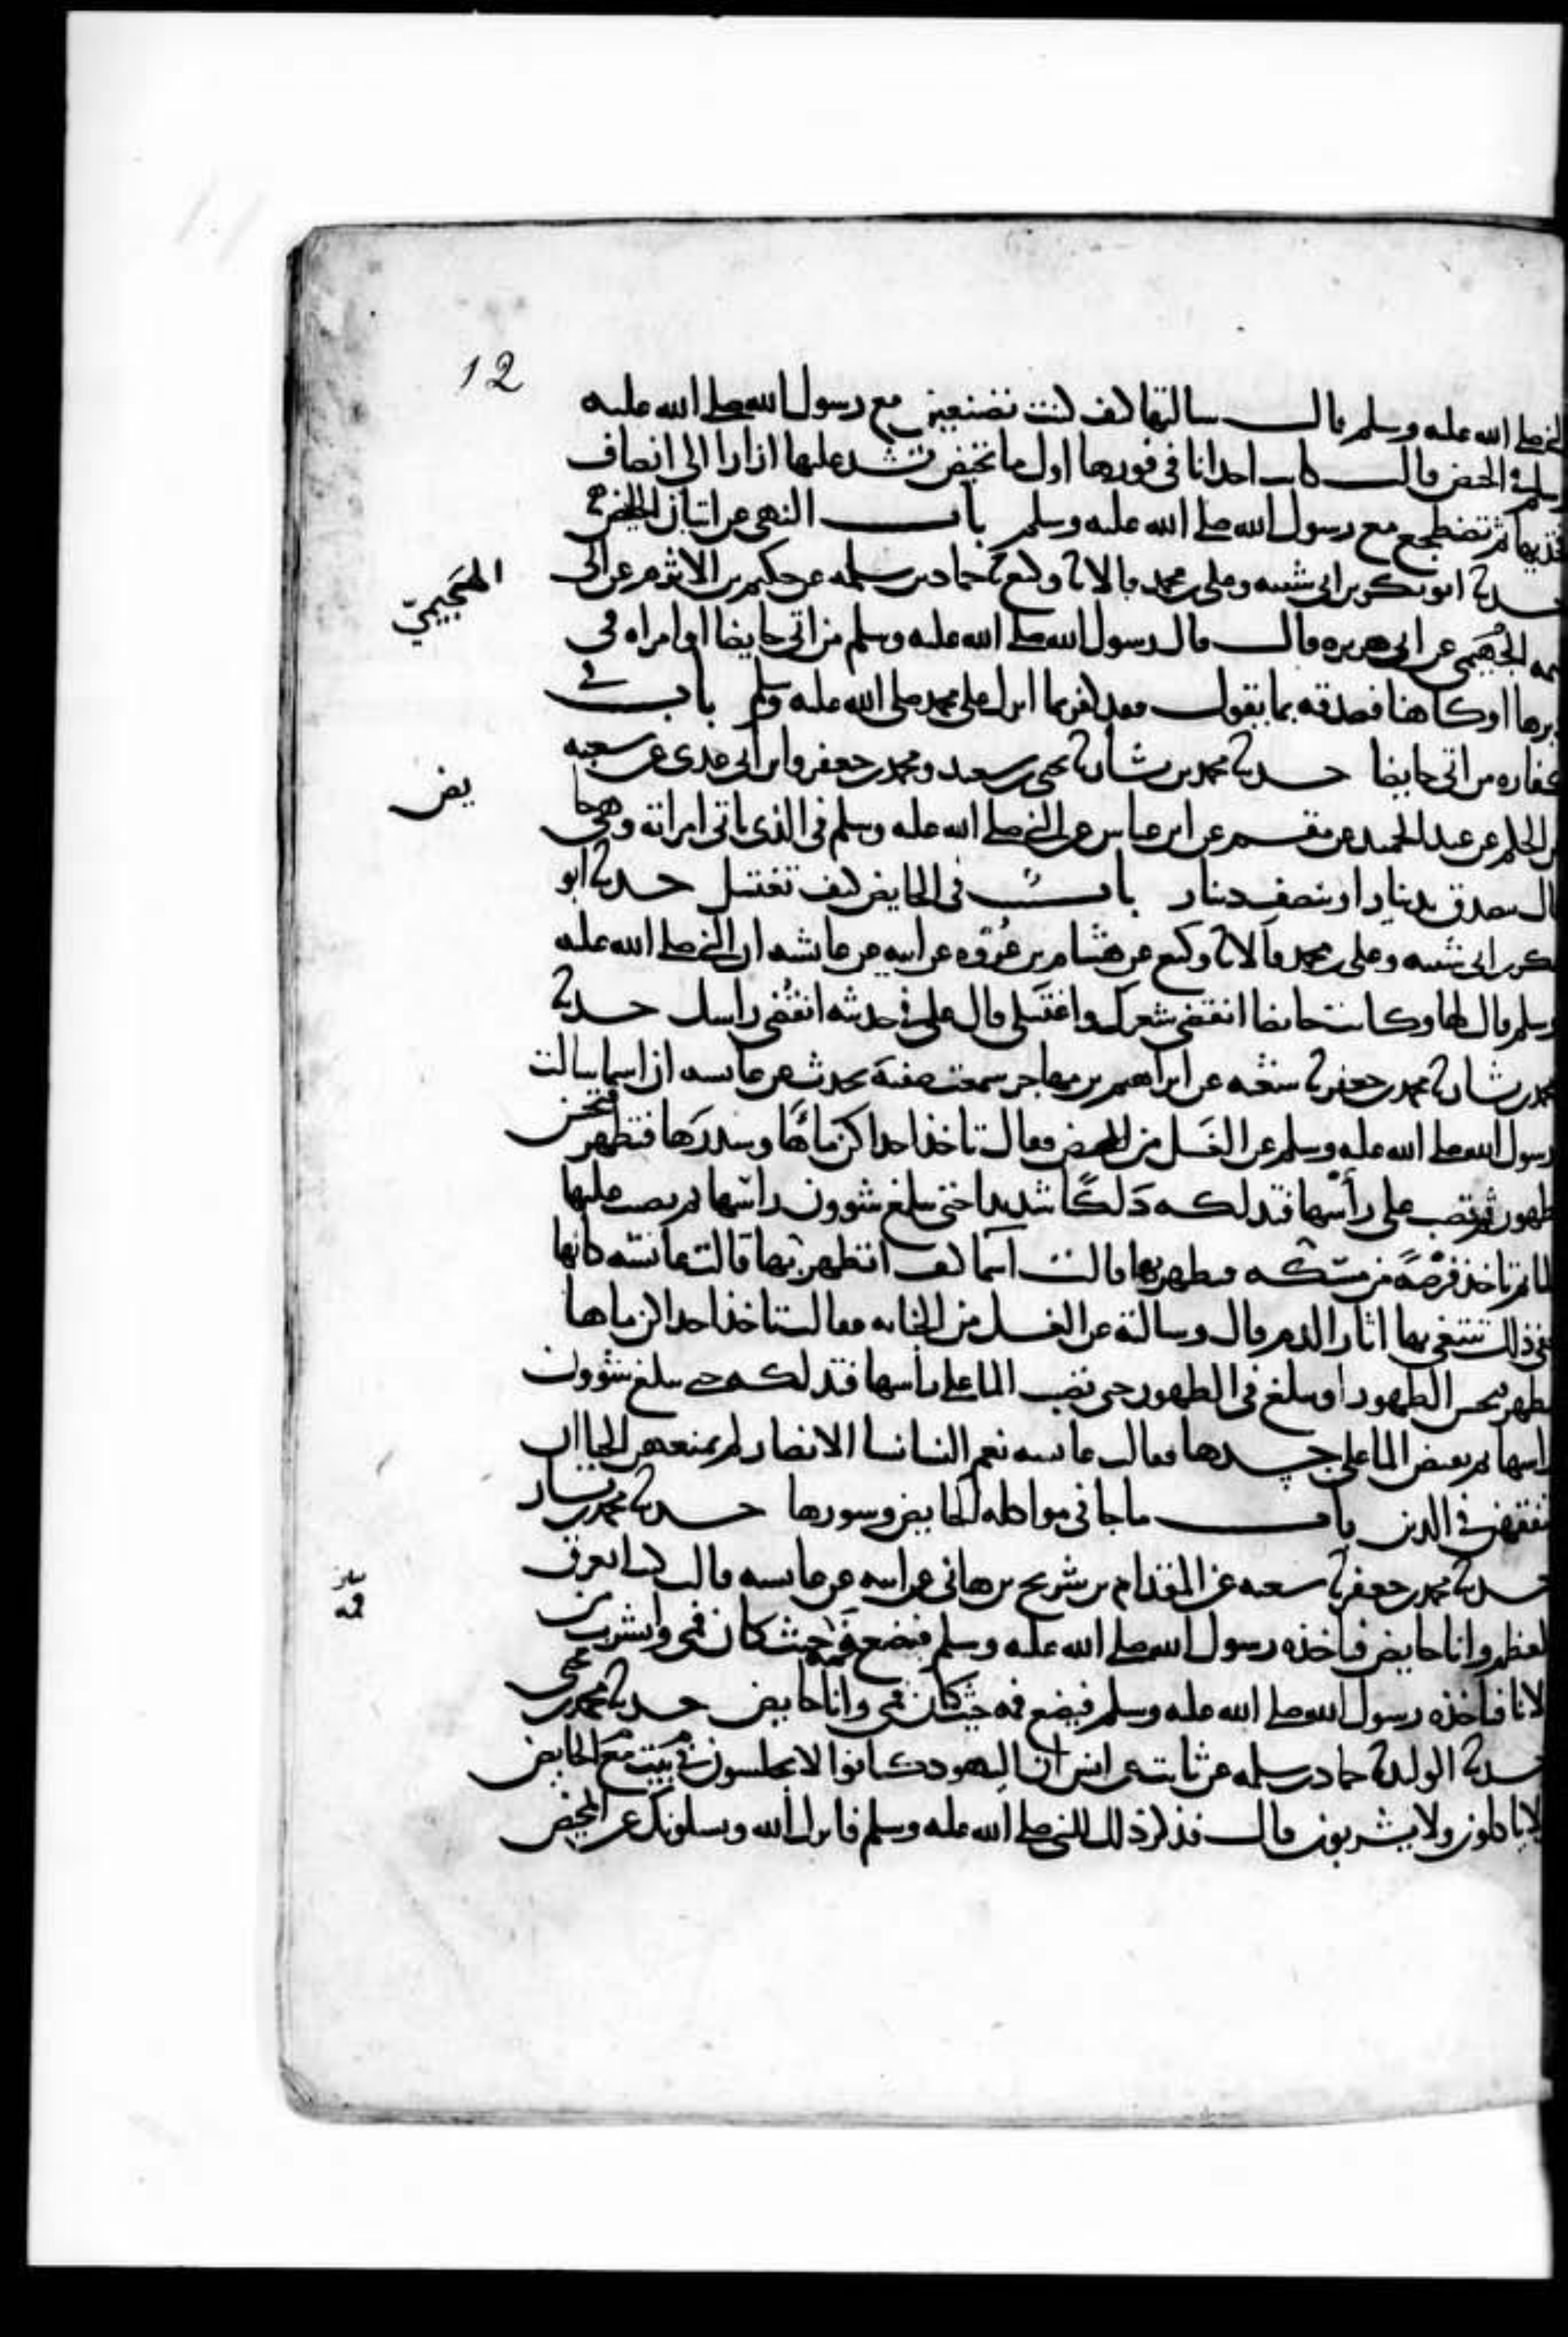 12
النبي صلى الله عليه وسلم قال سالتها كيف كنت تصنعين مع رسول الله صلى الله عليه
وسلم في الحيض قالت كانت احدانا في فورها اول ما تحيض تشد عليها ازارا الى انصاف
فخذيها ثم تضطجع مع رسول الله صلى الله عليه وسلم باب النهي عن اتيان الحايض
حدثنا ابو بكر بن ابي شيبه وعلي بن محمد قالا ثنا وكيع ثنا حماد بن سلمه عن حكيم بن الاثرم عن ابي
الهجيمي
تميمه الجُهَيمي عن ابي هريره قال قال رسول الله صلى الله عليه وسلم من اتى حايضا او امراه في
دبرها او كاهنا فصدقه بما يقول فقد كفر بما انزل على محمد صلى الله عليه وسلم باب في
كفاره من اتى حايضا حدثنا محمد بن بشار ثنا يحيى بن سعيد ومحمد بن جعفر وابن ابي عدي عن شعبه
يض
عن الحكم عن عبد الحميد عن مقسم عن ابن عباس عن النبي صلى الله عليه وسلم في الذي ياتي امراته وهي حا
قال يتصدق بدينار او بنصف دينار باب في الحايض كيف تغتسل حدثنا ابو
بكر بن ابي شيبه وعلي بن محمد قالا ثنا وكيع عن هشام بن عُرْوه عن ابيه عن عائشه ان النبي صلى الله عليه
وسلم قال لها وكانت حائضا انقضي شعرك واغتسلي قال علي في حديثه انقُضي راسك حدثنا
محمد بن بشار ثنا محمد بن جعفر ثنا شعبه عن ابراهيم بن مهاجر سمعت صفيه تحدث عن عائشه ان اسما سالت
رسول الله صلى الله عليه وسلم عن الغسل من المحيض فقالت تاخذ احداكن ماءها وسدرها فتطهر فتحسن
الطهور ثم تصب على رأسها فتدلكه دَلكًا شديدا حتى تبلغ شوون راسها ثم تصب عليها
الما ثم تاخذ فرصةً ممسكه فتطهر بها قالت اسما كيف اتطهر بها قالت عائشه كانها
تخفي ذلك تتبعي بها اثار الدم قال وسالته عن الغسل من الجنابه فقالت تاخذ احداكن ماها
فتطهر فتحسن الطهور او تبلغ في الطهور حتى تصب الما على راسها فتدلكه حتى تبلغ شؤون
راسها ثم تفيض الما على جسدها فقالت عائشه نعم النسا نسا الانصار لم يمنعهن الحيا ان
يتفقهن في الدين باب ما جا في مواكله الحايض وسورها حدثنا محمد بن بشار
حدثنا محمد بن جعفر ثنا شعبه عن المقدام بن شريح بن هاني عن ابيه عن عائشه قالت كنت اتعرق
فمه
العظم وانا حايض فياخذه رسول الله صلى الله عليه وسلم فيضع فمه حيث كان فمي واشرب من
الانا فياخذه رسول الله صلى الله عليه وسلم فيضع فمه حيث كان فمي وانا حايض حدثنا محمد بن يحيى
حدثنا ابو الوليد ثنا حماد بن سلمه عن ثابت عن انس ان اليهود كانوا لا يجلسون في بيت مع الحايض
ولا ياكلون ولا يشربون قال فذكر ذلك للنبي صلى الله عليه وسلم فانزل الله ويسلونك عن المحيض